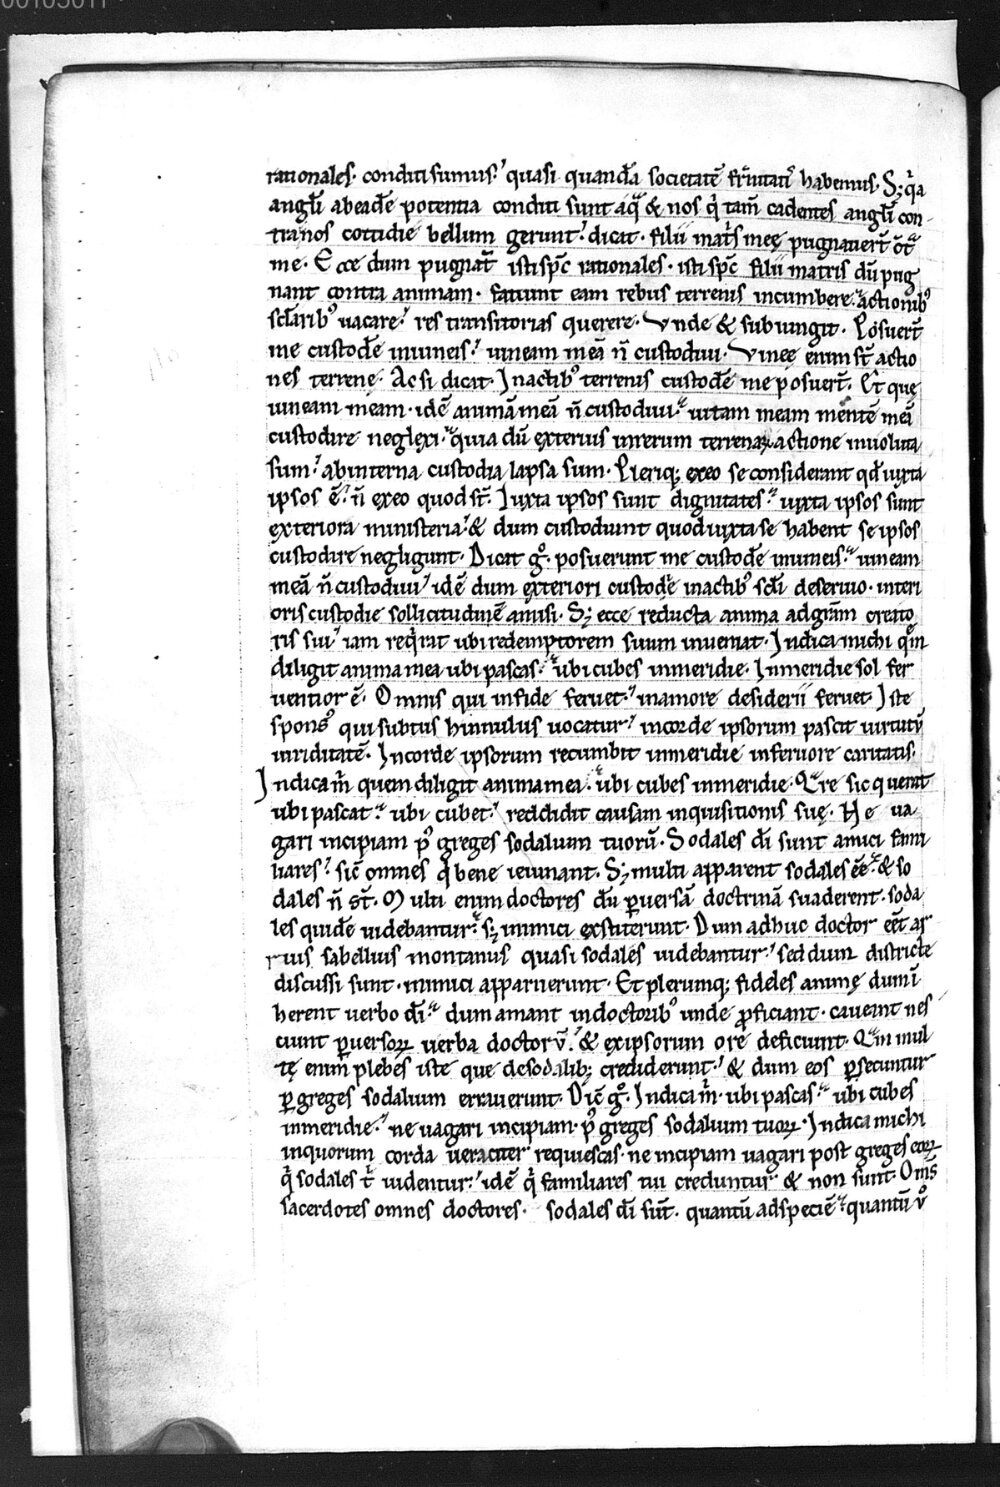 00105011
rationales· conditi sumus·' quasi quandā societatē fr̄nitatis habemus· S; q̓a
angl̄i ab eadē potentia conditi sunt a qͣ & nos q̓ tam̄ cadentes angl̄i con-
tra nos cottidie bellum gerunt·' dicat· filii mat̓s meę pugnauer̄t ↄ̄tͣ
me· Ecce dum pugnat̄ isti sp̄c rationales· isti sp̄c filii matris dū pug
nant contra animam· faciunt eam rebus terrenis incumbere·' actionibꝰ
scl̄aribꝰ uacare·' res transitorias querere· Vnde & subiungit· Posuer̄t
me custodē in uineis·' uineam meā n̄ custodiui· Vineę enim st̄ actio
nes terrenę· Ac si dicat· In actibꝰ terrenis custodē me posuer̄t· Et quę
uineam meam· idē animā meā n̄ custodiui·' uitam meam mentē meā
custodire neglexi·' quia dū exterius in rerum terrenaꝝ actione inuoluta
sum·' ab interna custodia lapsa sum· Pleriqꝫ ex eo se considerant qd̄ iuxta
ipsos ē·' n̄ ex eo quod st̄· Iuxta ipsos sunt dignitates·' iuxta ipsos sunt
exteriora ministeria·' & dum custodiunt quod iuxta se habent se ipsos
custodire negligunt· Dicat gͦ· posuerunt me custodē in uineis·' uineam
meā n̄ custodiui·' idē dum exteriori custodē in actibꝰ scl̄i deseruio· interi
oris custodie sollicitudinē amisi· S; ecce reducta anima ad gr̄am creato
ris sui·' iam req̓rat ubi redemptorem suum inueniat· Indica michi quē
diligit anima mea ubi pascas·' ubi cubes in meridie· In meridie sol fer
uentior ē· Omnis qui in fide feruet·' in amore desiderii feruet Iste
sponsꝰ qui subtus hinnulus uocatur·' in corde ipsorum pascit uirtutū
uiriditatē· In corde ipsorum recumbit in meridie in feruore caritatis·
Indica m̓ quem diligit anima mea·' ubi cubes in meridie· Qͣre sic querat
ubi pascat·' ubi cubet·' reddidit causam inquisitionis suę· Ne ua
gari incipiam pꝰ greges sodalium tuorū· Sodales dī sunt amici fami
liares·' sic̄ omnes q̓ bene uiuunt· S; multi apparent sodales eē·' & so
dales n̄ st̄· Multi enim doctores dū ꝑuersā doctrinā suaderent· soda
les quidē uidebantur·' s; inimici exstiterunt· Dum adhuc doctor eēt ar
rius sabellius montanus quasi sodales uidebantur·' sed dum districte
discussi sunt· inimici apparuerunt· Et plerumqꝫ fideles animę dum ī
herent uerbo dī·' dum amant in doctoribꝰ unde ꝓficiant· cauent nes
ciunt ꝑuersoꝝ uerba doctorū·' & ex ipsorum ore deficiunt· Qͣm mul
tę enim plebes iste que de sodalibꝫ crediderunt·' & dum eos ꝑsecuntur
ꝑ greges sodalium errauerunt· Dic̄ gͦ· Indica m̓· ubi pascas·' ubi cubes
in meridie·' ne uagari incipiam· pꝰ greges sodalium tuoꝝ· Indica michi
in quorum corda ueraciter requiescas· ne incipiam uagari post greges eoꝝ
q̓ sodales t̓ uidentur·' idē q̓ familiares tui creduntur & non sunt· Om̄s
sacerdotes omnes doctores· sodales dī sūt· quantū ad speciē·' quantū ůͦ